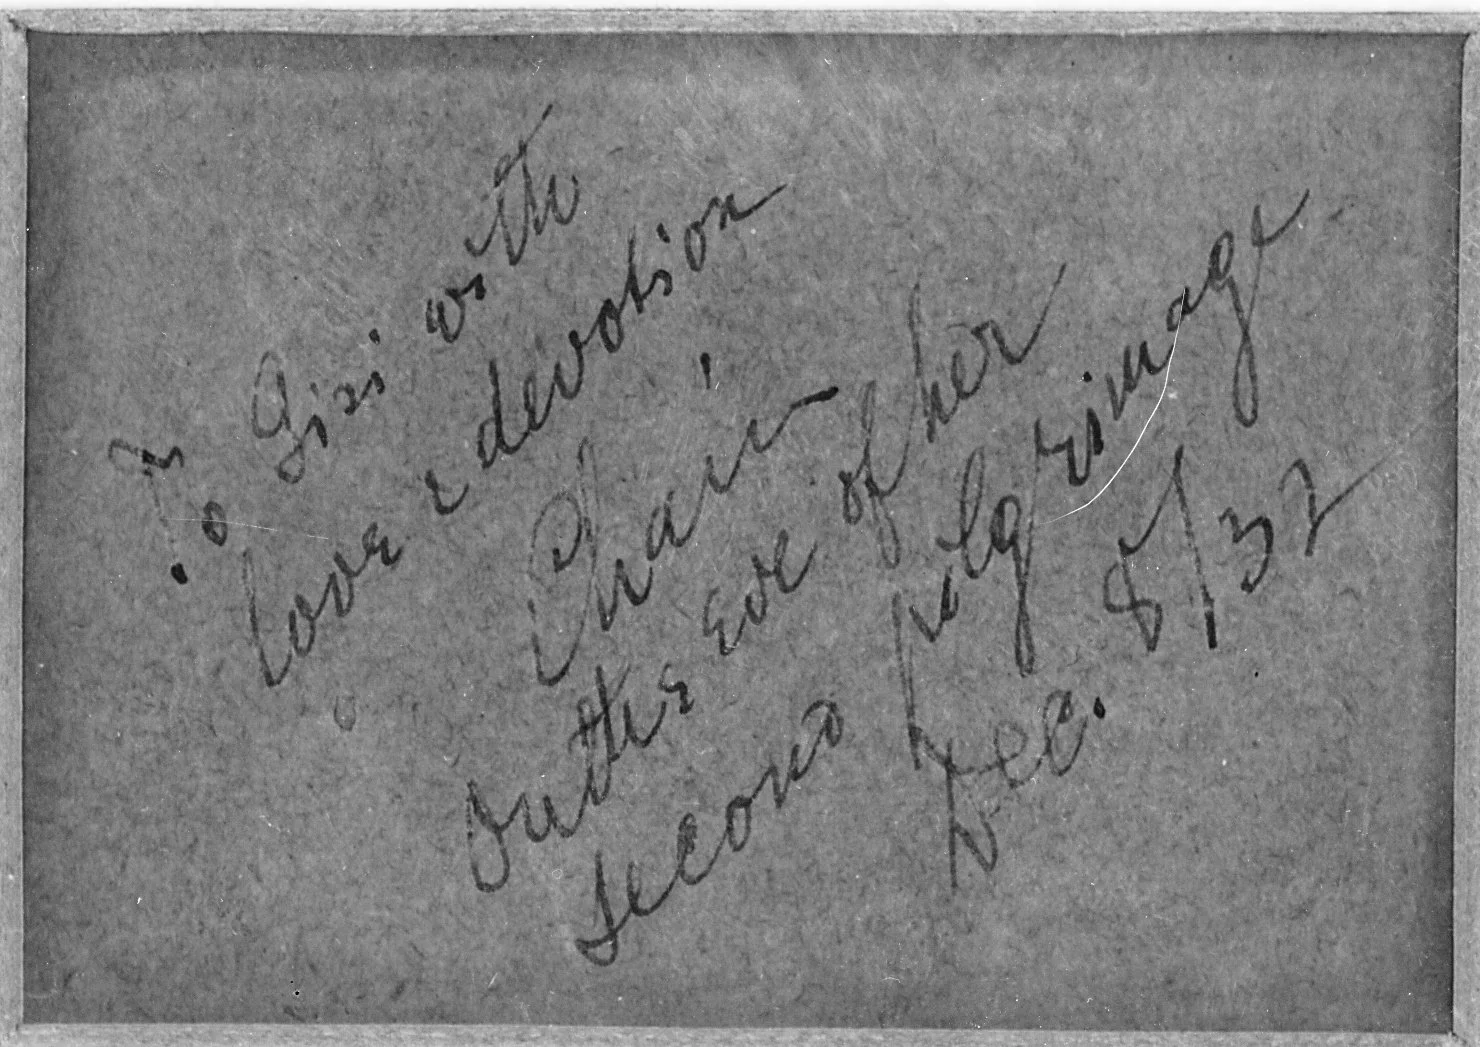 To Gisi with
love & devotion
Chaim
On the eve of her
second pilgrimage
Dec. 8/32